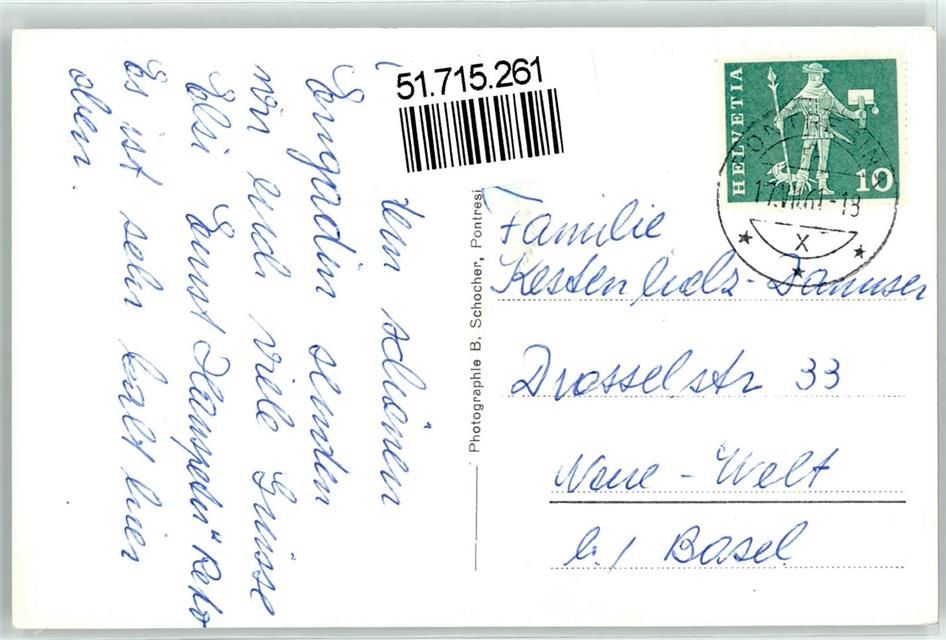 51.715.261
HELVETIA
10
17.VII.61-18
X
Vom schönen
Engadin senden
wir Euch viele Grüsse
Elsi Ernst Hanspeter u Reto
Es ist sehr kalt hier
oben.
Photographie B. Schocher, Pontresi
Familie
Kestenholz-Danuser
Drosselstr 33
Neue-Welt
b/ Basel